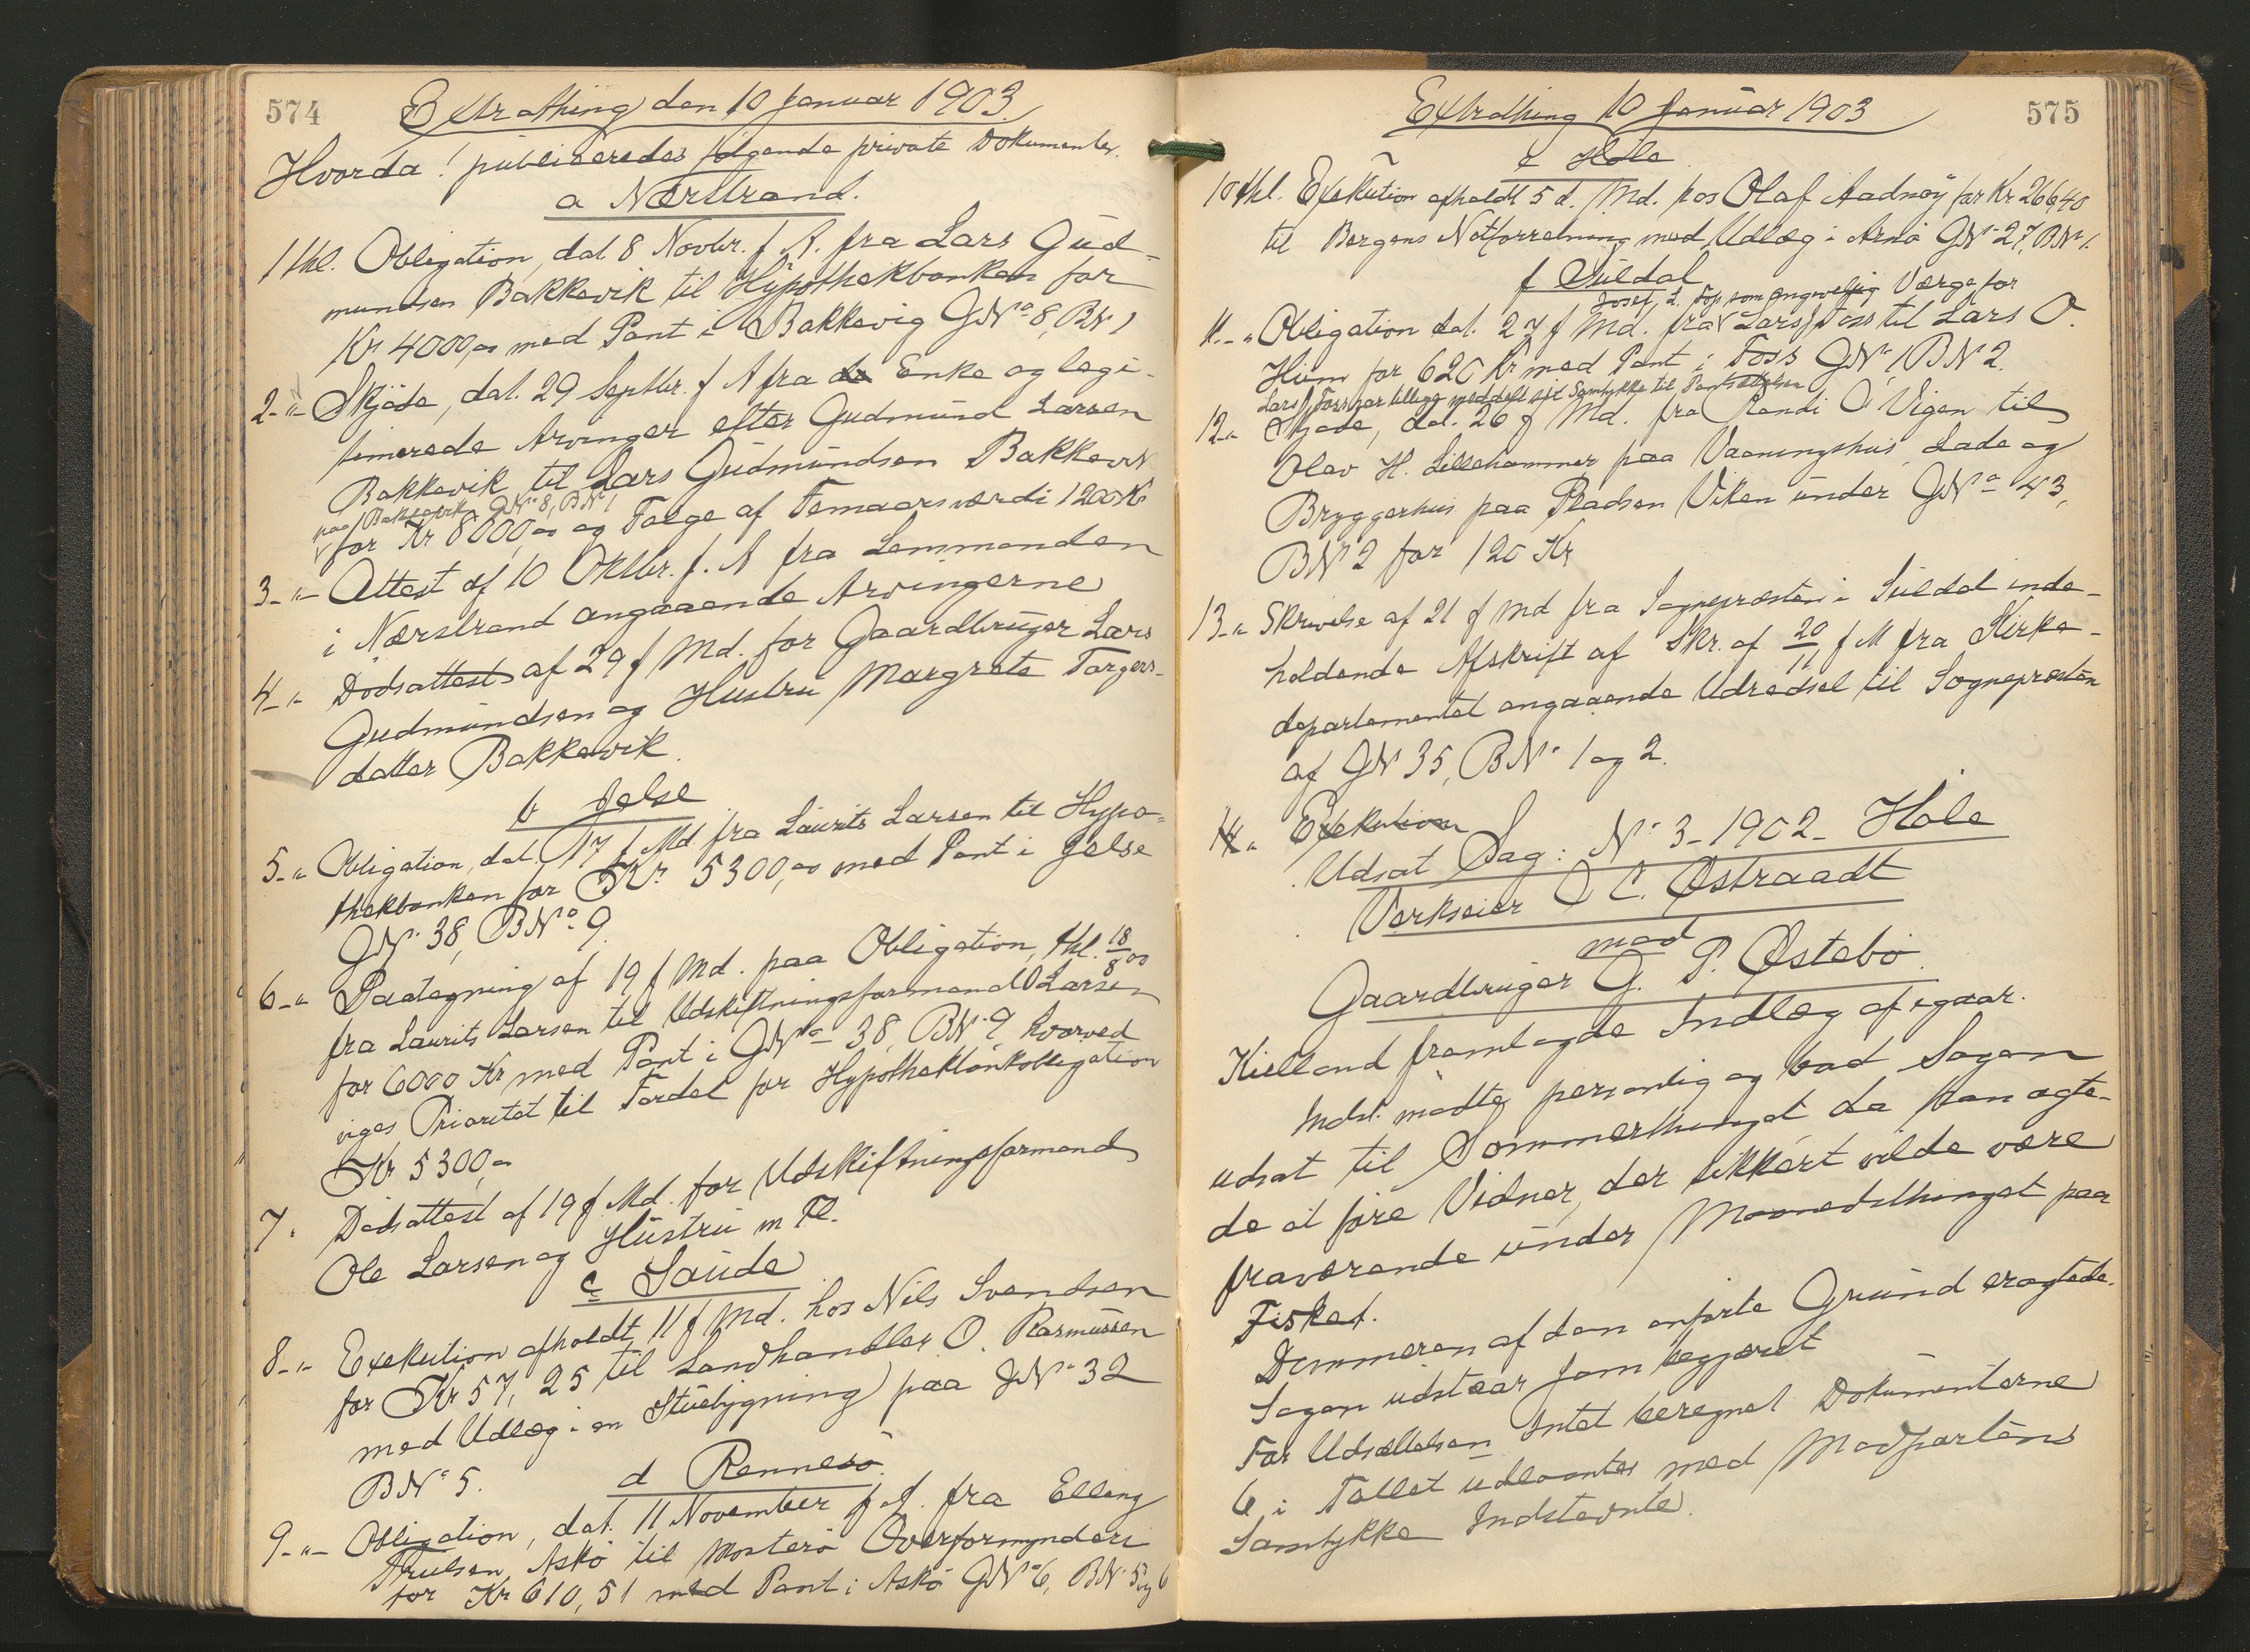 574
Extrathing den 10 Januar 1903.
Hvorda! publiceredes følgende private Dokumenter.
a Nærstrand.
1 thl. Obligation, dat 8 Novbr. f. A. fra Lars Gud-
mundsen Bakkevik til Hypothekbanken for
Kr 4000,00 med Pant i Bakkevig GNo 8, BN 1
2-"- Skjöde, dat. 29 Septbr. f A fra de Enke og legi-
timerede Arvinger efter Gudmund Larsen
Bakkevik til Lars Gudmundsen Bakkevik
paa Bakkevik GNo 8, BN 1
for Kr 8000,00 og Følge af Femaarsværdi 1200 Kr
3-"- Attest af 10 Oktbr. f. A fra Lensmanden
i Nærstrand angaaende Arvingerne
4-"- Dödsattest af 29 f Md. for Gaardbruger Lars
Gudmundsen og Hustru Margrete Torgers-
datter Bakkevik.
b Jelse
5-"- Obligation, dat. 17 f Md fra Laurits Larsen til Hypo-
thekbanken for Kr. 5300,00 med Pant i Jelse
GN. 38, BNo 9.
6-"- Paategning af 19 f Md. paa Obligation, thl. 18/8 00
fra Laurits Larsen til Udskiftningsformand O Larsen
for 6000 Kr med Pant i GNo 38, BN. 9, hvorved
viges Prioritet til Fordel for Hypotheklånkobligation
Kr 5300,00
7" Dødsattest af 19 f. Md. for Udskiftningsformand
Ole Larsen og Hustru m Fl.
c Saude
8-"- Exekution afholdt 11 f Md. hos Nils Svendsen
for Kr 57,25 til Landhandler O. Rasmussen
med Udlæg i en Stuebygning paa GN. 32
BN. 5.
d Rennesö
9-"- Obligation, dat. 11 November f. A. fra Elling
Truelsen Askö til Mosterö Overformynderi
for Kr 610,51 med Pant i Askö GNo 6, BN. 5 og 6
575
Extrathing 10 Januar 1903
e Hole
10 thl. Exekution afholdt 5 d. Md. hos Olaf Aadnöy for Kr 266,40
til Bergens Notforretning med Udlæg i Arnö GN. 27, BN. 1.
f Suldal
Josef, L. Foss som Værge for
11.-" Obligation dat. 27 f Md. fra Lars Foss til Lars O.
Hiim for 620 Kr med Pant i Foss GN. 1 BN 2.
Lars Foss har tillige meddelt sit Samtykke til Pantsættelsen
12" Skjøde, dat. 26 f Md. fra Randi O Vigen til
Olav H. Lillehammer paa Vaaningshus, Lade og
Bryggerhus paa Pladsen Viken under GNo 43,
BN 2 for 120 Kr
13-" Skrivelse af 21 f Md fra Sognepræsten i Suldal inde-
holdende Afskrift af Skr. af 20/11 f M fra Kirke-
departementet angaaende Udredsel til Sognepræsten
af GN 35, BN. 1 og 2.
14" Exekution
Udsat Sag: N. 3-1902- Hole
Verkseier O C. Østraadt
mod
Gaardbruger G. P. Østebö.
Kielland fremlagde Indlæg af igaar.
Indst. mødte personlig og bad Sagen
udsat til Sommerthinget da han agte-
de at føre Vidner, der sikkert vilde være
fraværende under Maanedsthinget paa
Fisket.
Dommeren af den anførte Grund eragtede:
Sagen udstaar som begjæret
For Udsættelsen Intet beregnet Dokumenterne
6 i Tallet udlaantes med Modpartens
Samtykke Indstevnte.